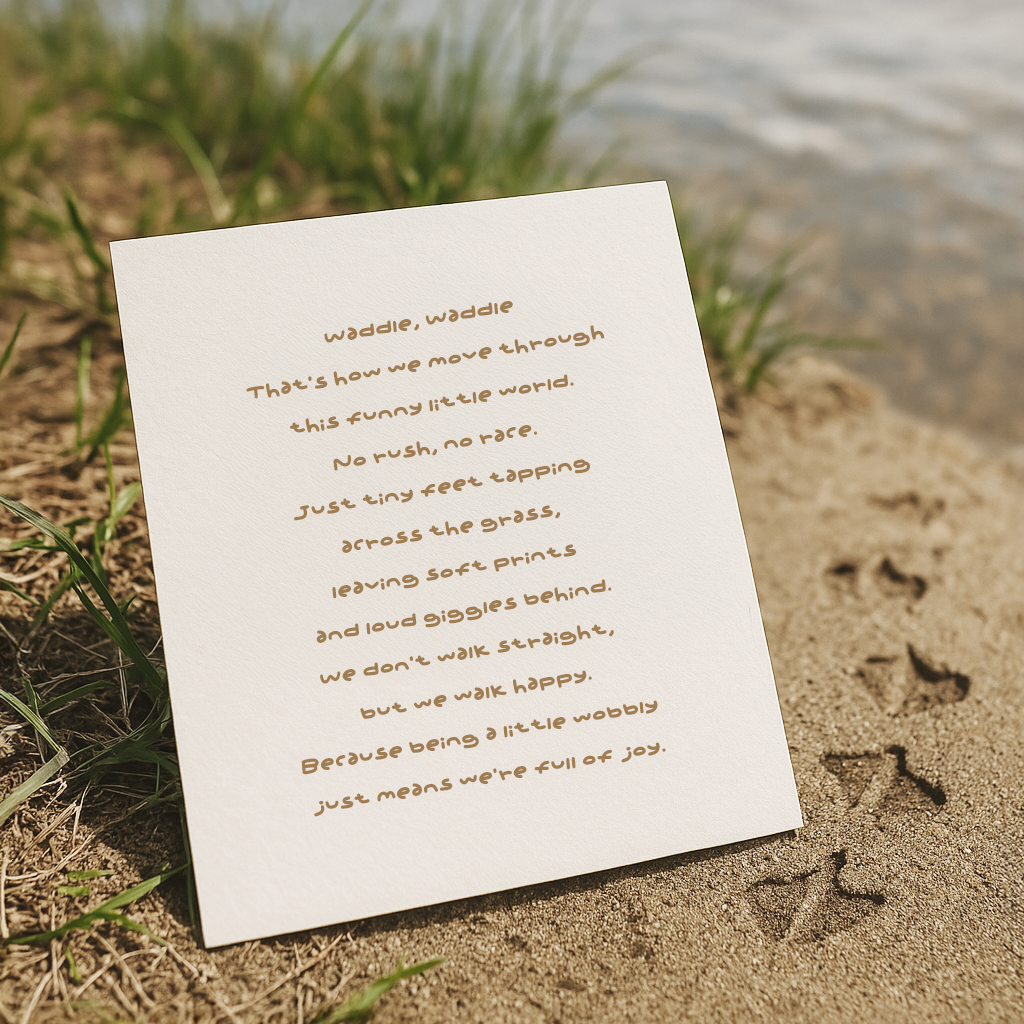 waddle, waddle
That's how we move through
this funny little world.
No rush, no race.
Just tiny feet tapping
across the grass,
leaving soft prints
and loud giggles behind.
we don't walk straight,
but we walk happy.
Because being a little wobbly
just means we're full of joy.